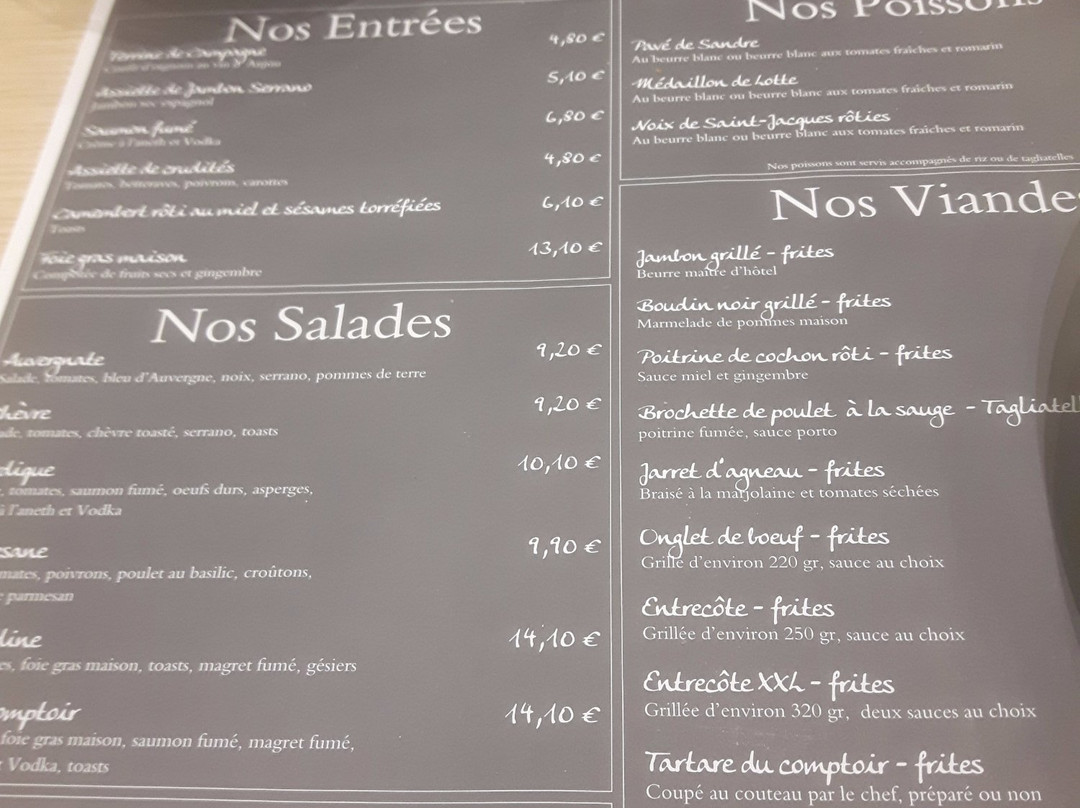 Nos Entrées
Terrine de Campagne 4,80 €
Assiette de Jambon Serrano 5,10 €
Jambon sec espagnol
Saumon fumé 6,80 €
Crème à l'aneth et Vodka
Assiette de crudités 4,80 €
Tomates, betteraves, poivrons, carottes
Camembert rôti au miel et sésames torréfiées 6,10 €
Toasts
Foie gras maison 13,10 €
Compotée de fruits secs et gingembre
Nos Salades
Auvergnate 9,20 €
Salade, tomates, bleu d'Auvergne, noix, serrano, pommes de terre
hèvre 9,20 €
ade, tomates, chèvre toasté, serrano, toasts
dique 10,10 €
, tomates, saumon fumé, oeufs durs, asperges,
à l'aneth et Vodka
sane 9,90 €
mates, poivrons, poulet au basilic, croûtons,
parmesan
dine 14,10 €
es, foie gras maison, toasts, magret fumé, gésiers
omptoir 14,10 €
foie gras maison, saumon fumé, magret fumé,
Vodka, toasts
Nos Poissons
Pavé de Sandre
Au beurre blanc ou beurre blanc aux tomates fraîches et romarin
Médaillon de Lotte
Au beurre blanc ou beurre blanc aux tomates fraîches et romarin
Noix de Saint-Jacques rôties
Au beurre blanc ou beurre blanc aux tomates fraîches et romarin
Nos poissons sont servis accompagnés de riz ou de tagliatelles
Nos Viande
Jambon grillé - frites
Beurre maître d'hôtel
Boudin noir grillé - frites
Marmelade de pommes maison
Poitrine de cochon rôti - frites
Sauce miel et gingembre
Brochette de poulet à la sauge - Tagliatell
poitrine fumée, sauce porto
Jarret d'agneau - frites
Braisé à la marjolaine et tomates séchées
Onglet de boeuf - frites
Grillé d'environ 220 gr, sauce au choix
Entrecôte - frites
Grillée d'environ 250 gr, sauce au choix
Entrecôte XXL - frites
Grillée d'environ 320 gr, deux sauces au choix
Tartare du comptoir - frites
Coupé au couteau par le chef, préparé ou non